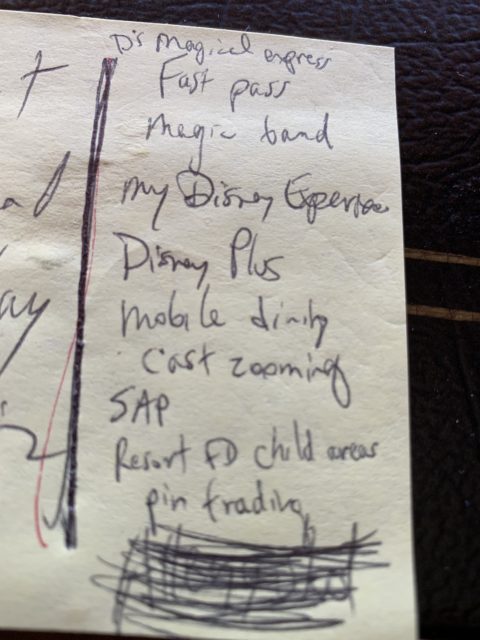 D's Magical express
Fast pass
Magic band
My Disney Experience
Disney Plus
Mobile dining
Cast zooming
SAP
Resort FD child areas
pin trading